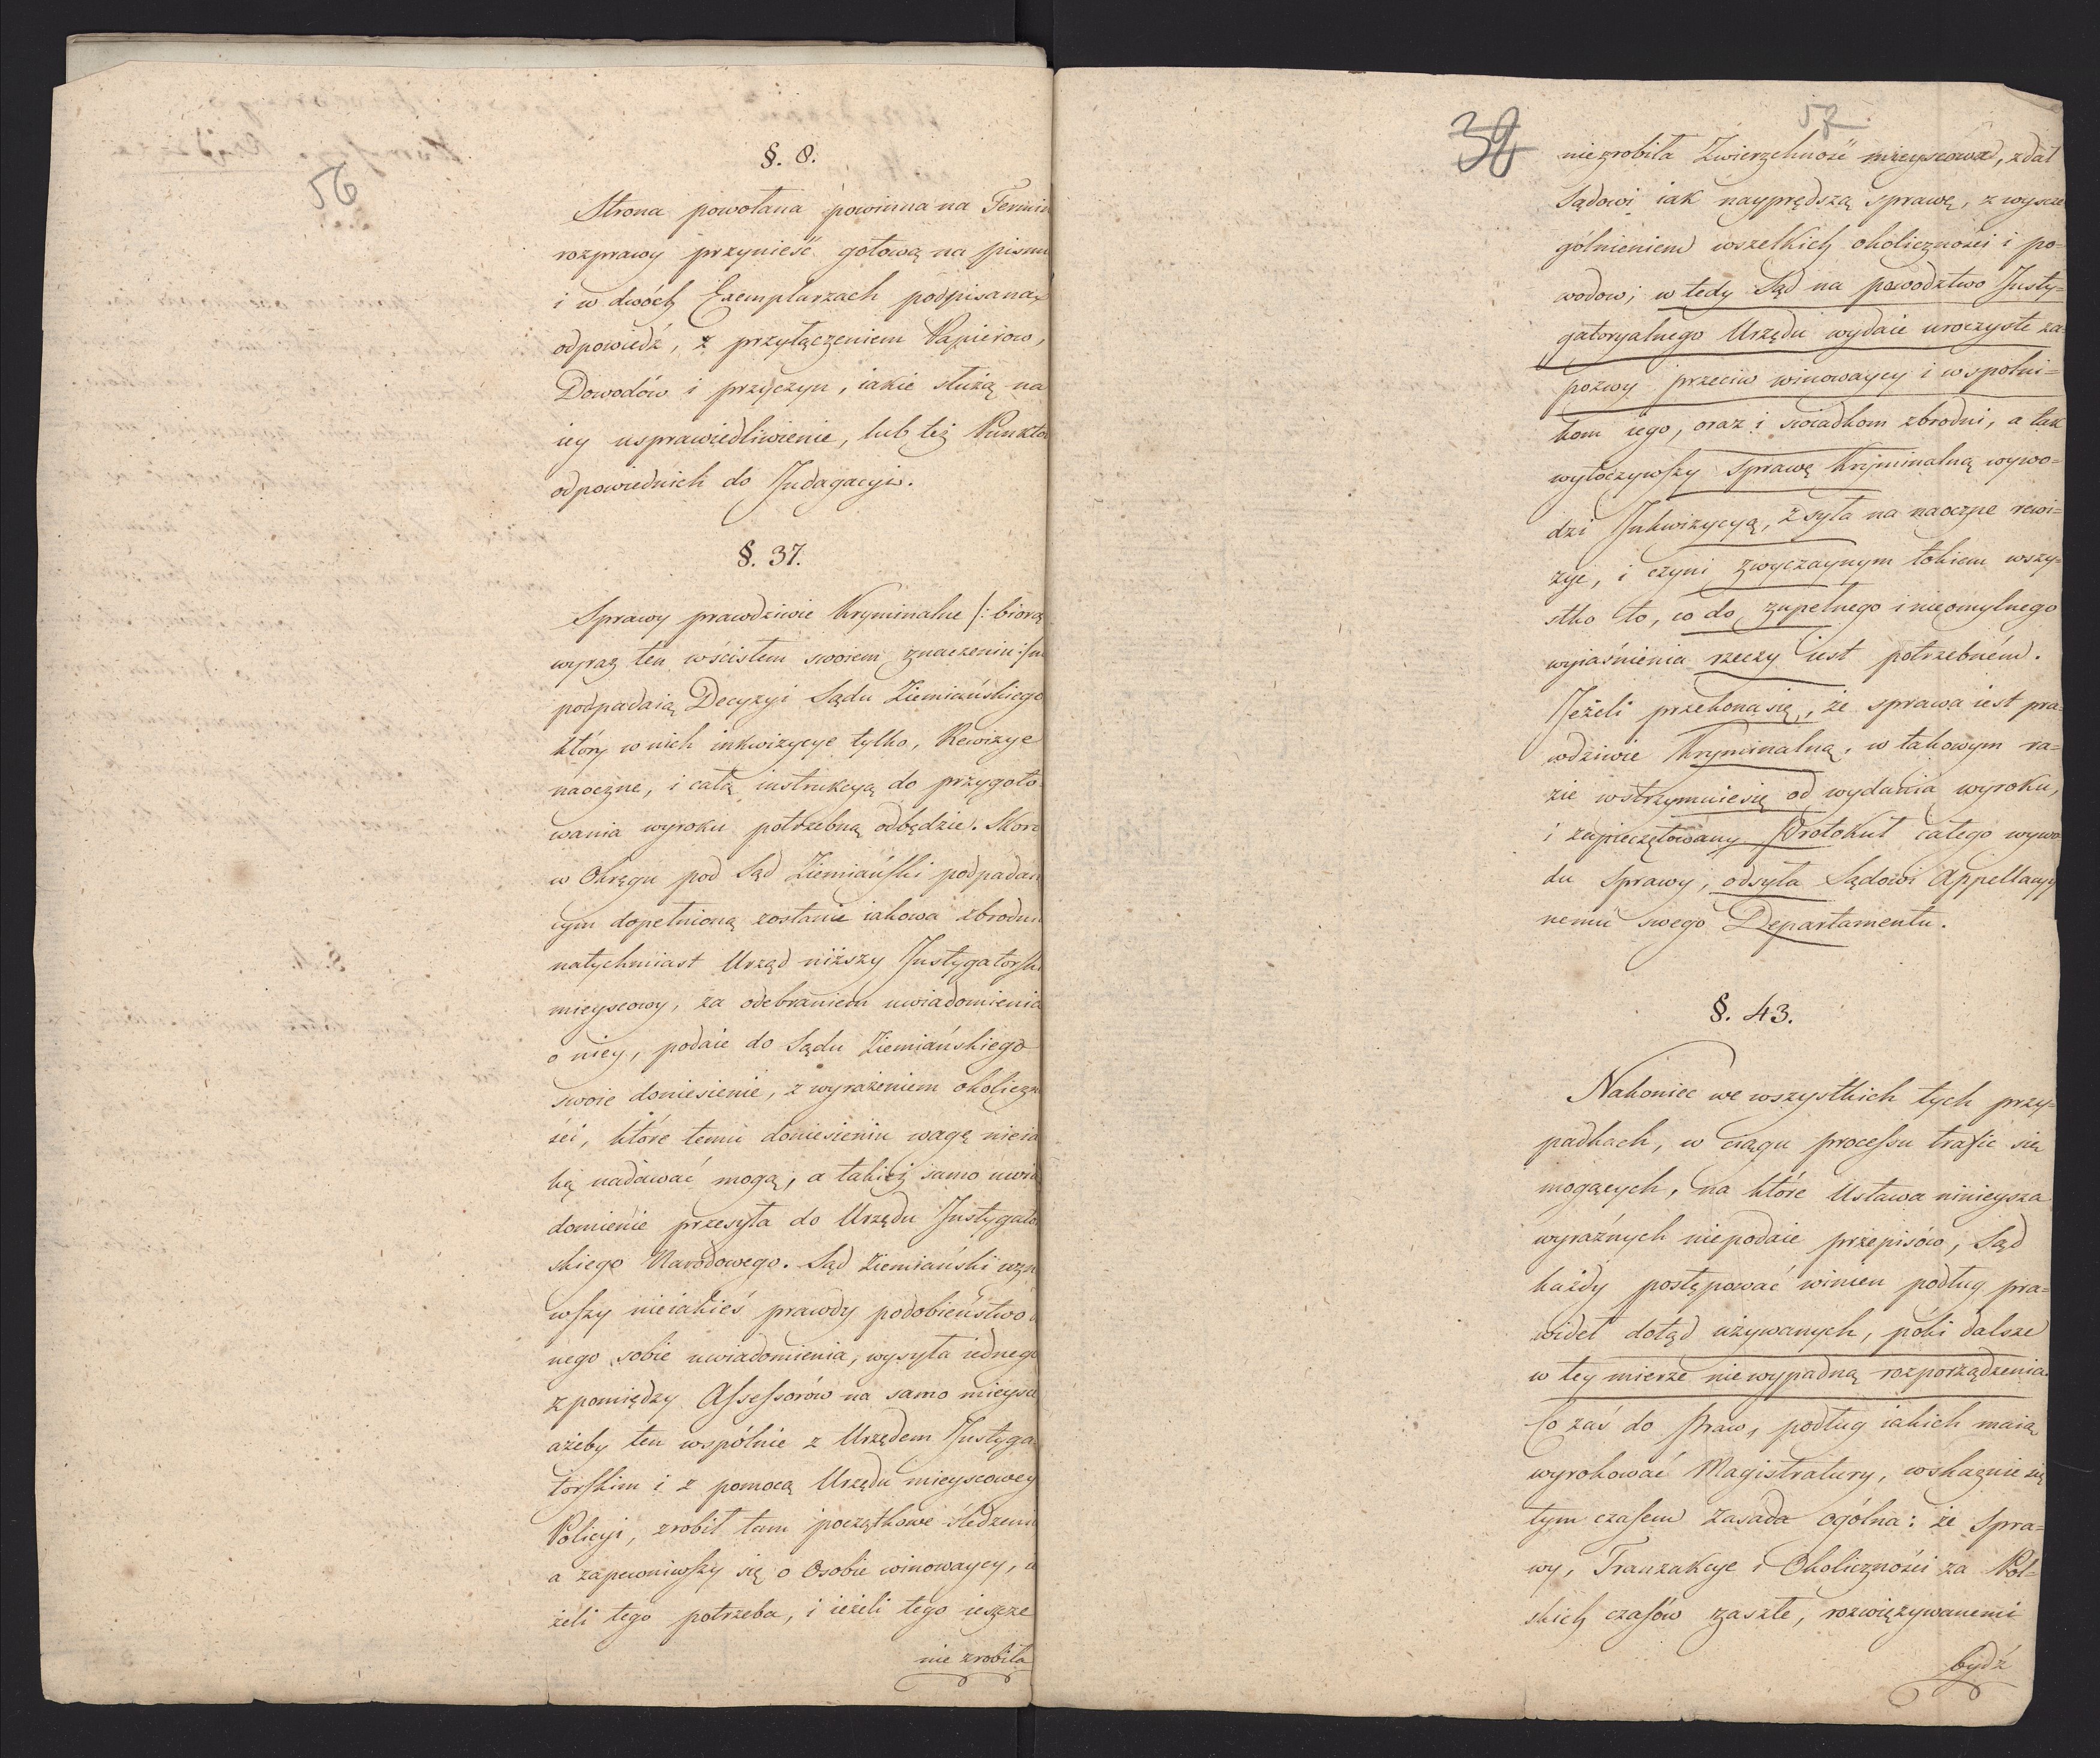 56
§. 8.
Strona powołana powinna na Termin
rozprawy przynieść gotową na piśmie
i w dwóch Exemplarzach podpisaną
odpowiedź, z przyłączeniem Papierow,
Dowodów i przyczyn, iakie służą na
iey usprawiedliwienie, lub też Punktow
odpowiednich do Indagacyi.
§. 37.
Sprawy prawdziwie Kryminalne /: biorąc
wyraz ten w ścisłem swoiem znaczeniu :/
podpadaią Decyzyi Sądu Ziemiańskiego
który w nich inkwizycye tylko, Rewizye
naoczne, i całą instrukcyą do przygoto
wania wyroku potrzebną odbędzie. Skoro
w Okręgu pod Sąd Ziemiański podpadaią
cym dopełnioną zostanie iakowa zbrodnia
natychmiast Urząd niższy Instygatorski
mieyscowy, za odebraniem uwiadomienia
o niey, podaie do Sądu Ziemiańskiego
swoie doniesienie, z wyrażeniem okoliczno
ści, które temu doniesieniu wagę nieia
ką nadawać mogą, a takież samo uwia
domienie przesyła do Urzędu Instygator
skiego Narodowego. Sąd Ziemiański uzna
wszy nieiakieś prawdy podobieństwo
nego sobie uwiadomienia, wysyła iednego
z pomiędzy Assessorów na samo mieysce
ażeby ten wspólnie z Urzędem Instyga
torskim i z pomocą Urzędu mieyscowey
Policyi, zrobił tam początkowe śledzenie
a zapewniwszy się o Osobie winowaycy,
żeli tego potrzeba, i ieżeli tego ieszcze
nie zrobiła
38
57
niezrobiła Zwierzchność mieyscowa, zdał
Sądowi iak nayprędszą sprawę, z wyszcze
gólnieniem wszelkich okoliczności i po=
wodow; w tedy Sąd na powodztwo Insty=
gatoryalnego Urzędu wydaie uroczyste za
pozwy przeciw winowaycy i wspolni=
kom iego, oraz i swiadkom zbrodni, a tak
wytoczywszy sprawę Kryminalną wywo=
dzi Inkwizycyą, zsyła na naoczne rewi=
zye, i czyni zwyczaynym tokiem wszy=
stko to, co do zupełnego i nieomylnego
wyiaśnienia rzeczy iest potrzebném.
Jeżeli przekona się, że sprawa iest pra=
wdziwie Kryminalną, w takowym ra=
zie wstrzymuie się od wydania wyroku,
i zapieczętowany Protokuł całego wywo
du sprawy, odsyła Sądowi Appellacyy
nemu swego Departamentu.
§. 43.
Nakoniec we wszystkich tych przy=
padkach, w ciągu processu trafić się
mogących, na które Ustawa ninieysza
wyraźnych niepodaie przepisów, Sąd
każdy postępować winien podług pra=
wideł dotąd używanych, póki dalsze
w tey mierze niewypadną rozporządzenia.
Co zaś do Praw, podług iakich maią
wyrokować Magistratury, wskazuie się
tym czasem Zasada ogólna: że Spra=
wy, Tranzakcye i Okoliczności za Pol=
skich czasów zaszłe, rozwięzywanemi
bydź